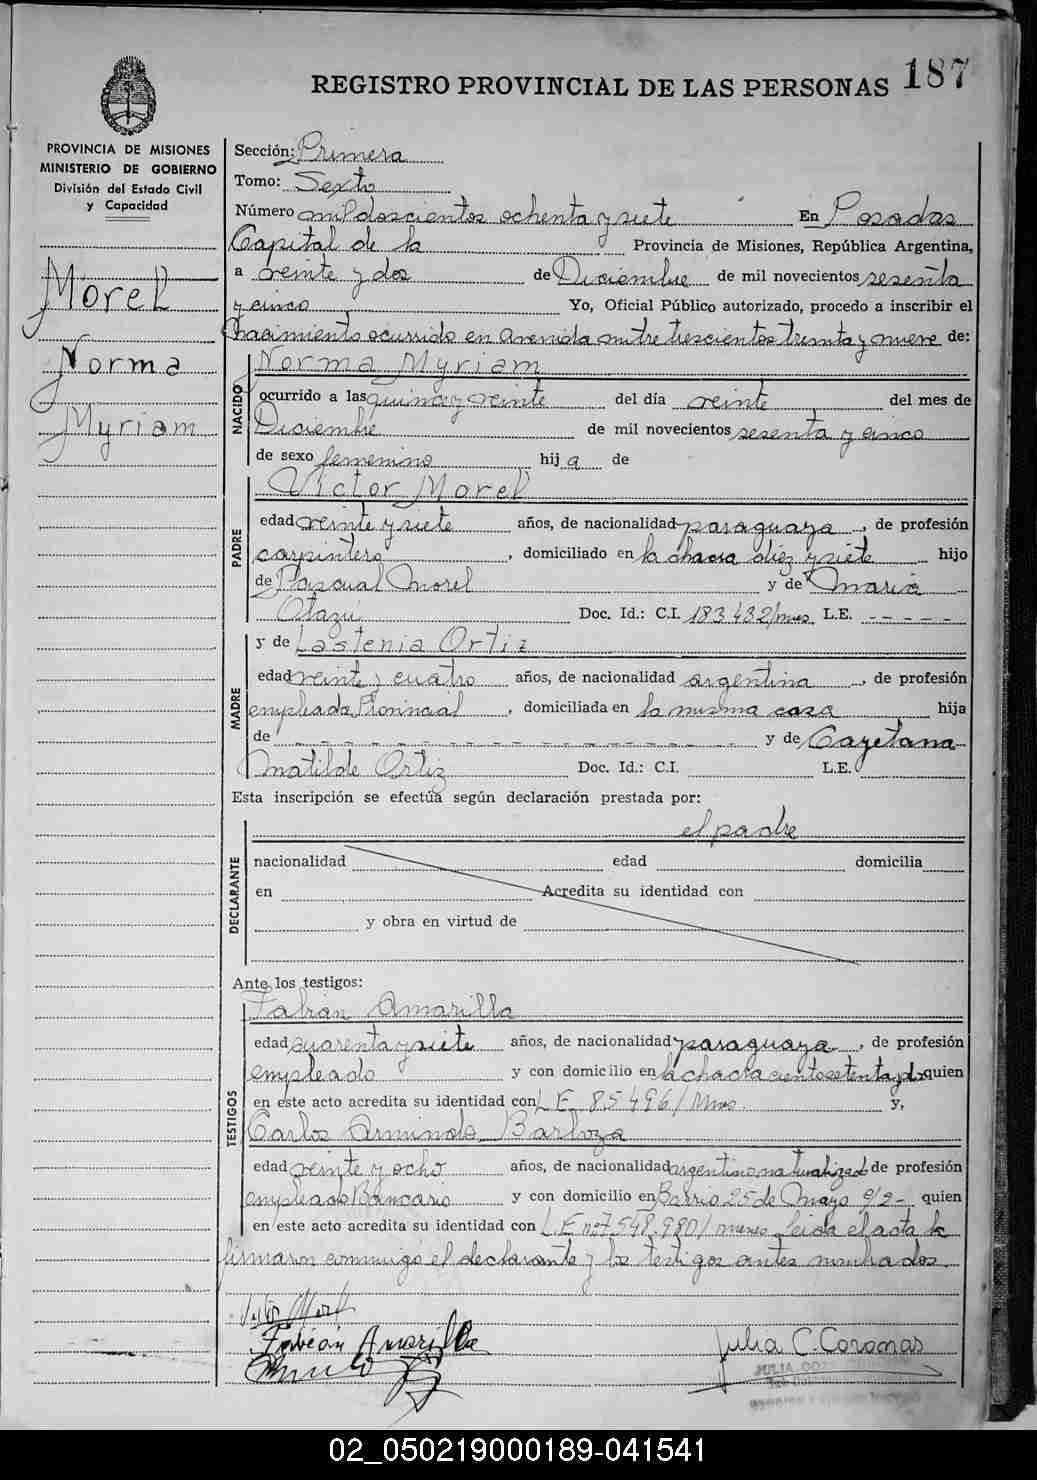 187
REGISTRO PROVINCIAL DE LAS PERSONAS
PROVINCIA DE MISIONES
MINISTERIO DE GOBIERNO
División del Estado Civil
y Capacidad
Morel
Norma
Myriam
Sección: Primera
Tomo: Sexto
Número mil doscientos ochenta y siete En Posadas
Capital de la Provincia de Misiones, República Argentina,
a veinte y dos de Diciembre de mil novecientos sesenta
y cinco Yo, Oficial Público autorizado, procedo a inscribir el
nacimiento ocurrido en avenida mitre trescientos treinta y nueve de:
NACIDO
Norma Myriam
ocurrido a las quince y veinte del día veinte del mes de
Diciembre de mil novecientos sesenta y cinco
de sexo femenino hija de
PADRE
Victor Morel
edad veinte y siete años, de nacionalidad paraguaya, de profesión
carpintero, domiciliado en la chacra diez y siete hijo
de Pascual Morel y de Maria
Otazú Doc. Id.: C.I. 183432/mnes L.E. - - - - -
MADRE
y de Lastenia Ortiz
edad veinte y cuatro años, de nacionalidad argentina, de profesión
empleada Provincial, domiciliada en la misma casa hija
de - - - - - - - - - - - - - - - - y de Cayetana
Matilde Ortiz Doc. Id.: C.I. L.E.
Esta inscripción se efectúa según declaración prestada por:
DECLARANTE
el padre
nacionalidad edad domicilia
en Acredita su identidad con
y obra en virtud de
Ante los testigos:
TESTIGOS
Fabián Amarilla
edad cuarenta y siete años, de nacionalidad paraguaya, de profesión
empleado y con domicilio en la chacra ciento setenta y dos quien
en este acto acredita su identidad con L.E. 85496/Mnes. y,
Carlos Armindo Barboza
edad veinte y ocho años, de nacionalidad argentino naturalizado de profesión
empleado Bancario y con domicilio en Barrio 25 de Mayo c/2- quien
en este acto acredita su identidad con L.E nº 7.548.980/mnes Leida el acta la
firmaron conmigo el declarante y los testigos antes nombrados.
Fabián Amarilla
Julia C. Coronas
02_050219000189-041541